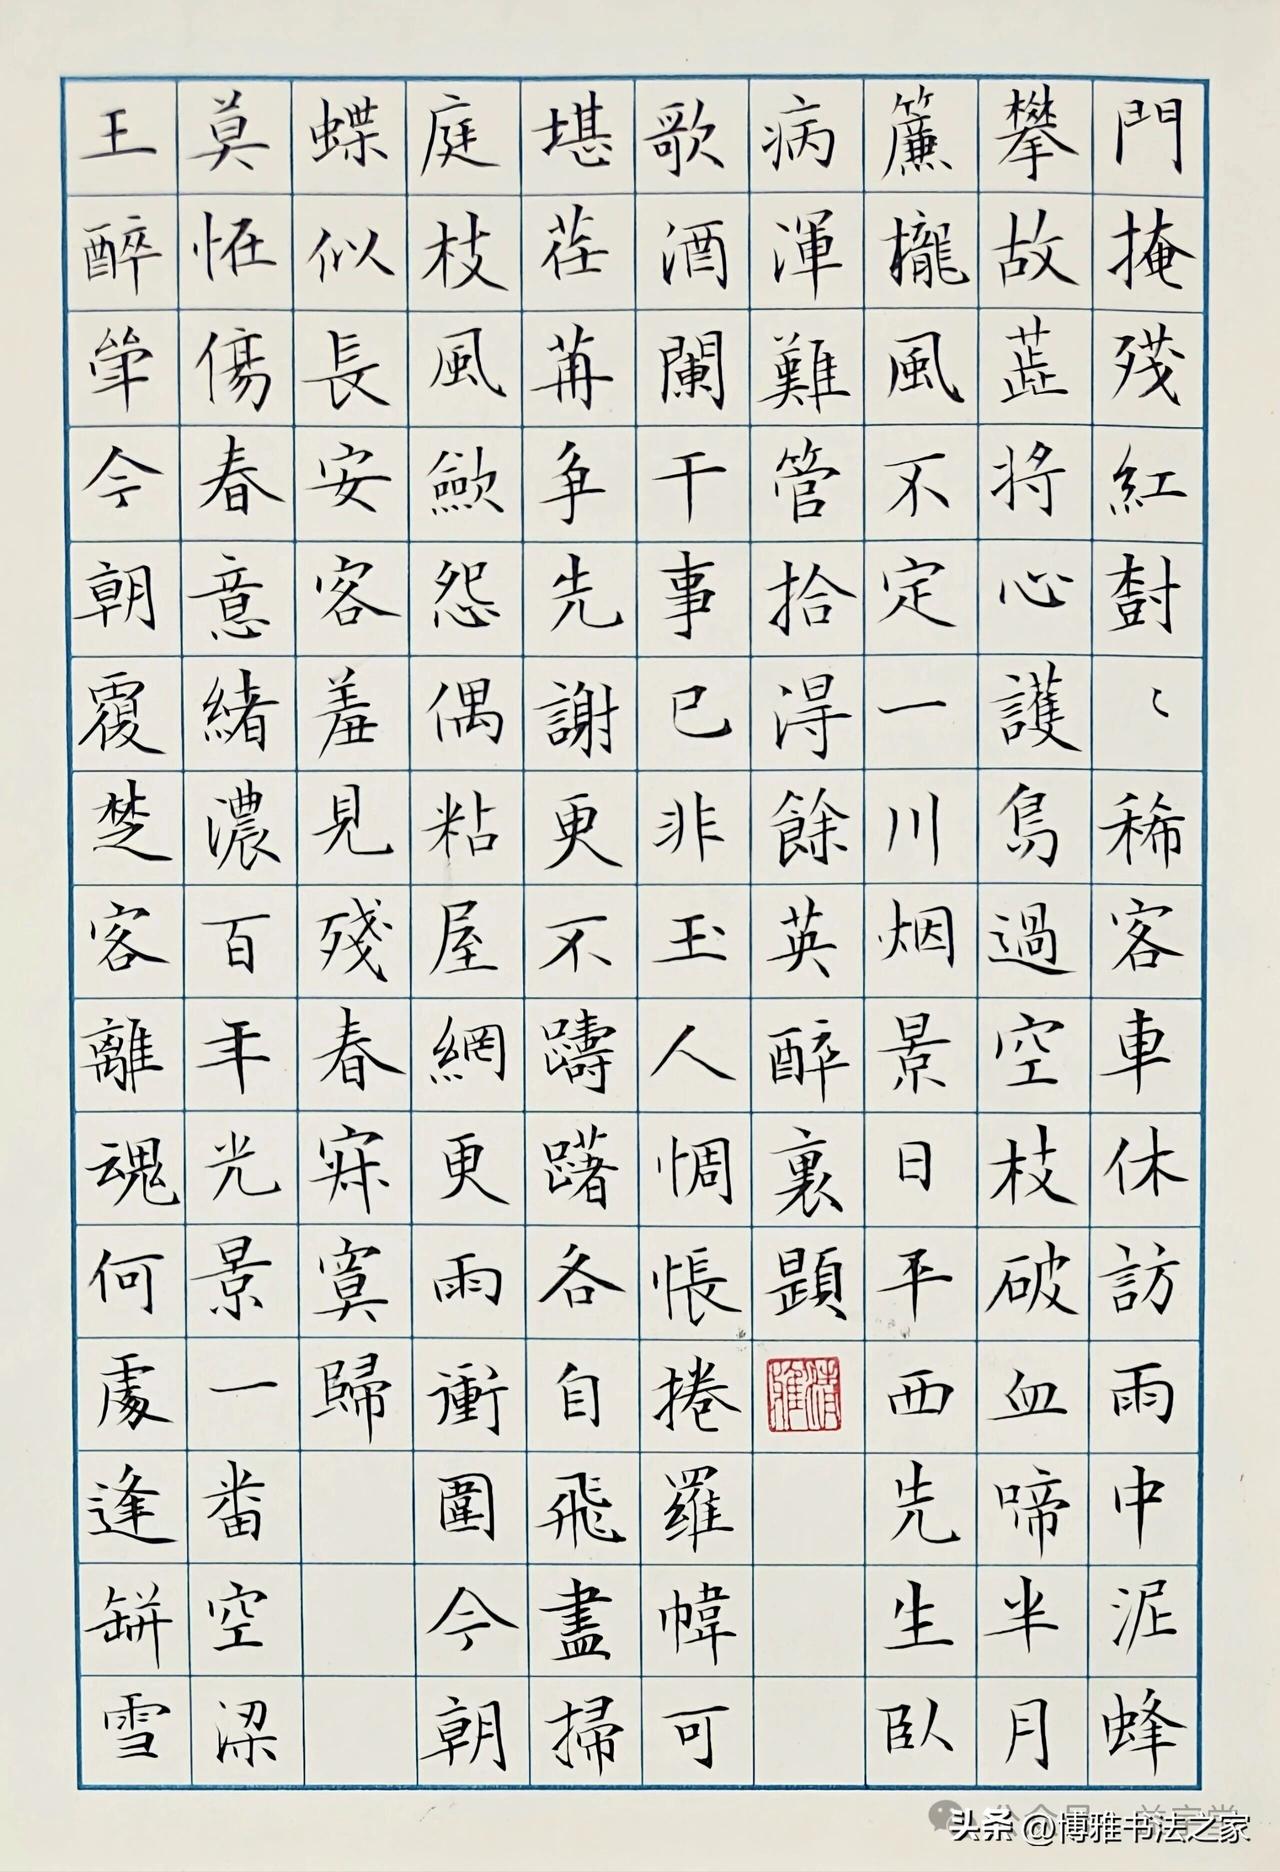 門掩殘紅尌〻稀客車休訪雨中泥蜂
攀故蕋將心護鳥過空枝破血啼半月
簾櫳風不定一川烟景日平西先生臥
病渾難管拾得餘英醉裏題
清雅
歌酒闌干事已非玉人惆悵捲羅幃可
堪荏苒爭先謝更不躊躇各自飛盡掃
庭枝風歛怨偶粘屋網更雨衝圍今朝
蝶似長安客羞見殘春寂寞歸
莫恠傷春意緒濃百年光景一番空梁
王醉斝今朝覆楚客離魂何處逢缾雪
头条 @博雅书法之家